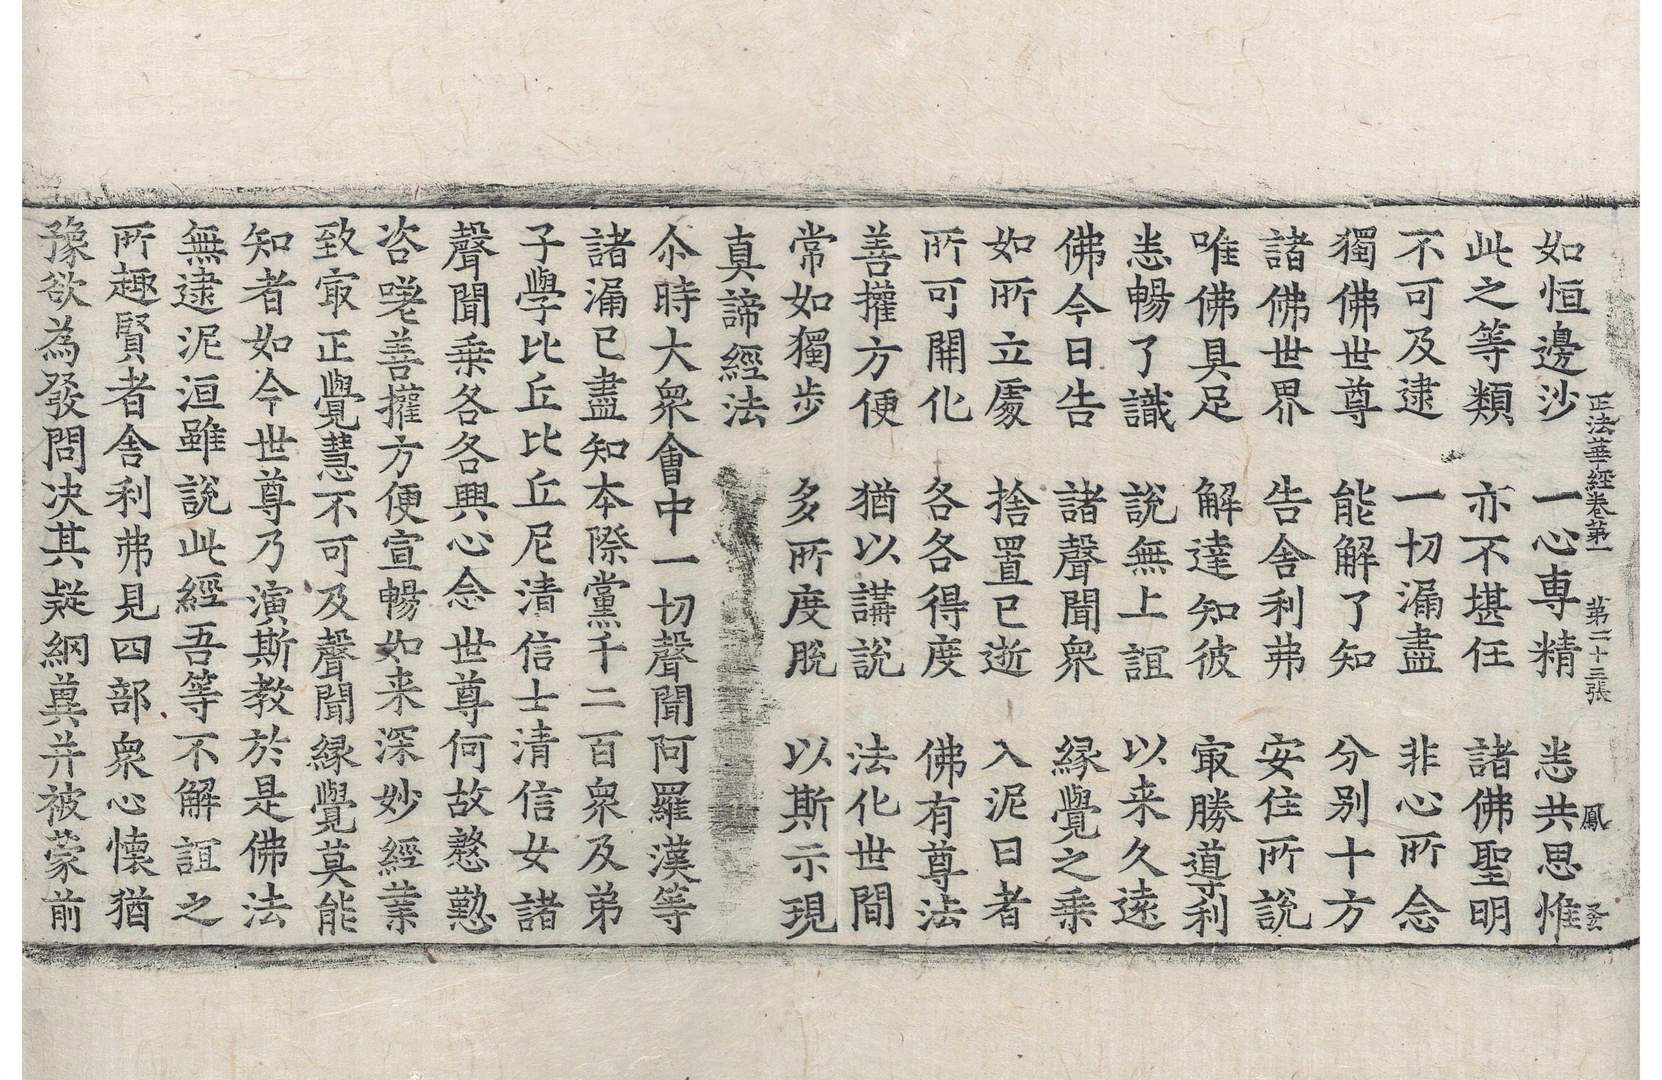 正法華經卷第一 第二十三張 鳳
如恒邊沙 一心專精 恙共思惟
此之等類 亦不堪任 諸佛聖明
不可及逮 一切漏盡 非心所念
獨佛世尊 能解了知 分别十方
諸佛世界 告舍利弗 安住所說
唯佛具足 解達知彼 㝡勝導利
恙暢了識 說無上誼 以来久遠
佛今日告 諸聲聞衆 縁覺之乗
如所立處 捨置已逝 入泥曰者
所可開化 各各得度 佛有尊法
善權方便 猶以講說 法化世間
常如獨步 多所度脫 以斯示現
真諦經法
尒時大衆會中一切聲聞阿羅漢等
諸漏已盡知本際黨千二百衆及弟
子學比丘比丘尼清信士清信女諸
聲聞乗各各興心念世尊何故慇懃
咨嗟善權方便宣暢如来深妙經業
致㝡正覺慧不可及聲聞縁覺莫能
知者如今世尊乃演斯教於是佛法
無逮泥洹雖說此經吾等不解誼之
所趣賢者舍利弗見四部衆心懷猶
豫欲為發問决其疑網冀并被蒙前